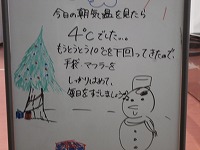 今日の朝気温を見たら
4℃でした…。
もうとうとう10℃を下回ってきたので、
手袋、マフラーを
しっかりはめて、
毎日をすごしましょう